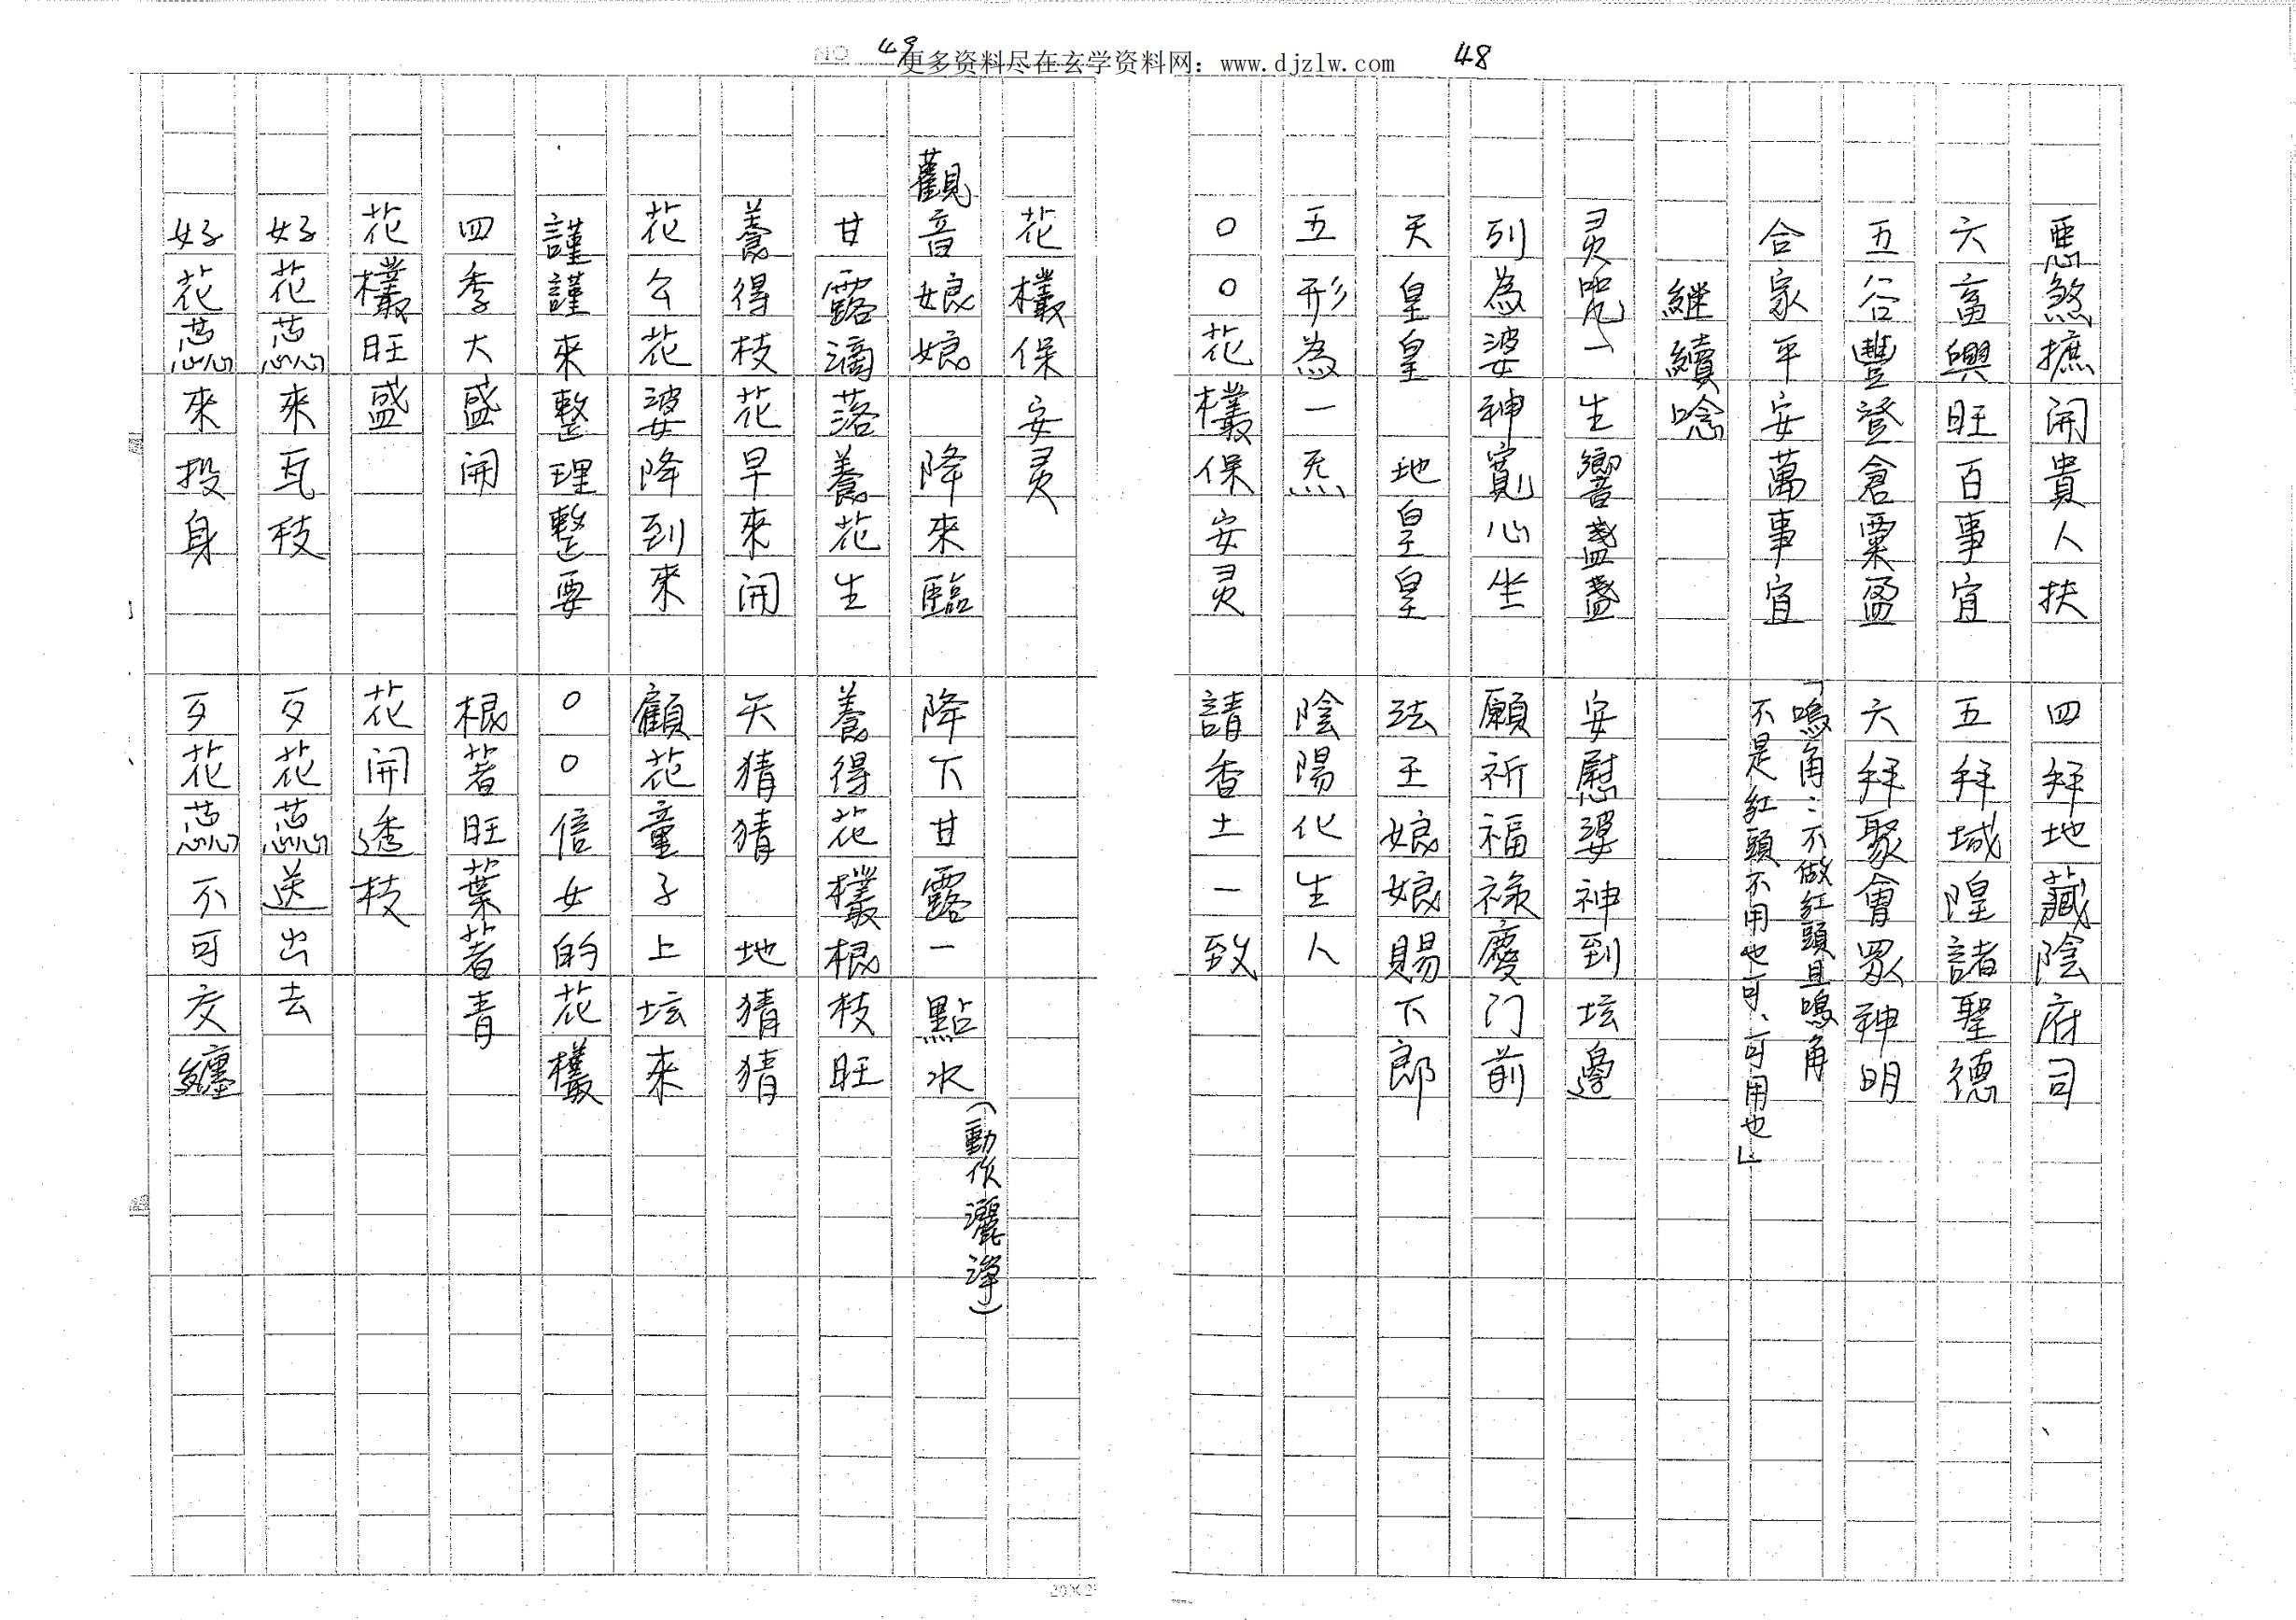 更多资料尽在玄学资料网：www.djzlw.com
48
悪煞摭開貴人扶　四拜地藏陰府司
六畜興旺百事宜　五拜域隍諸聖德
五谷豐登倉粟盈　六拜聚會眾神明
合家平安萬事宜
「鳴角：不做紅頭且鳴角
不是紅頭不用也可、可用也」
継續唸
灵咒一生響盞盞　安慰婆神到坛邊
列為婆神寬心坐　願祈福祿慶门前
天皇皇　地皇皇　法王娘娘賜下郎
五形為一炁　陰陽化生人
○○花欉保安灵　請香土一致
49
花欉保安灵
觀音娘娘　降來臨　降下甘露一點水（動作灑淨）
甘露滴落養花生　養得花欉根枝旺
養得枝花早來開　天猜猜　地猜猜
花公花婆降到來　顧花童子上坛來
謹謹來整理整要　○○信女的花欉
四季大盛開　根著旺葉著青
花欉旺盛　花開透枝
好花蕊來瓦枝　歹花蕊送出去
好花蕊來投身　歹花蕊不可交纏